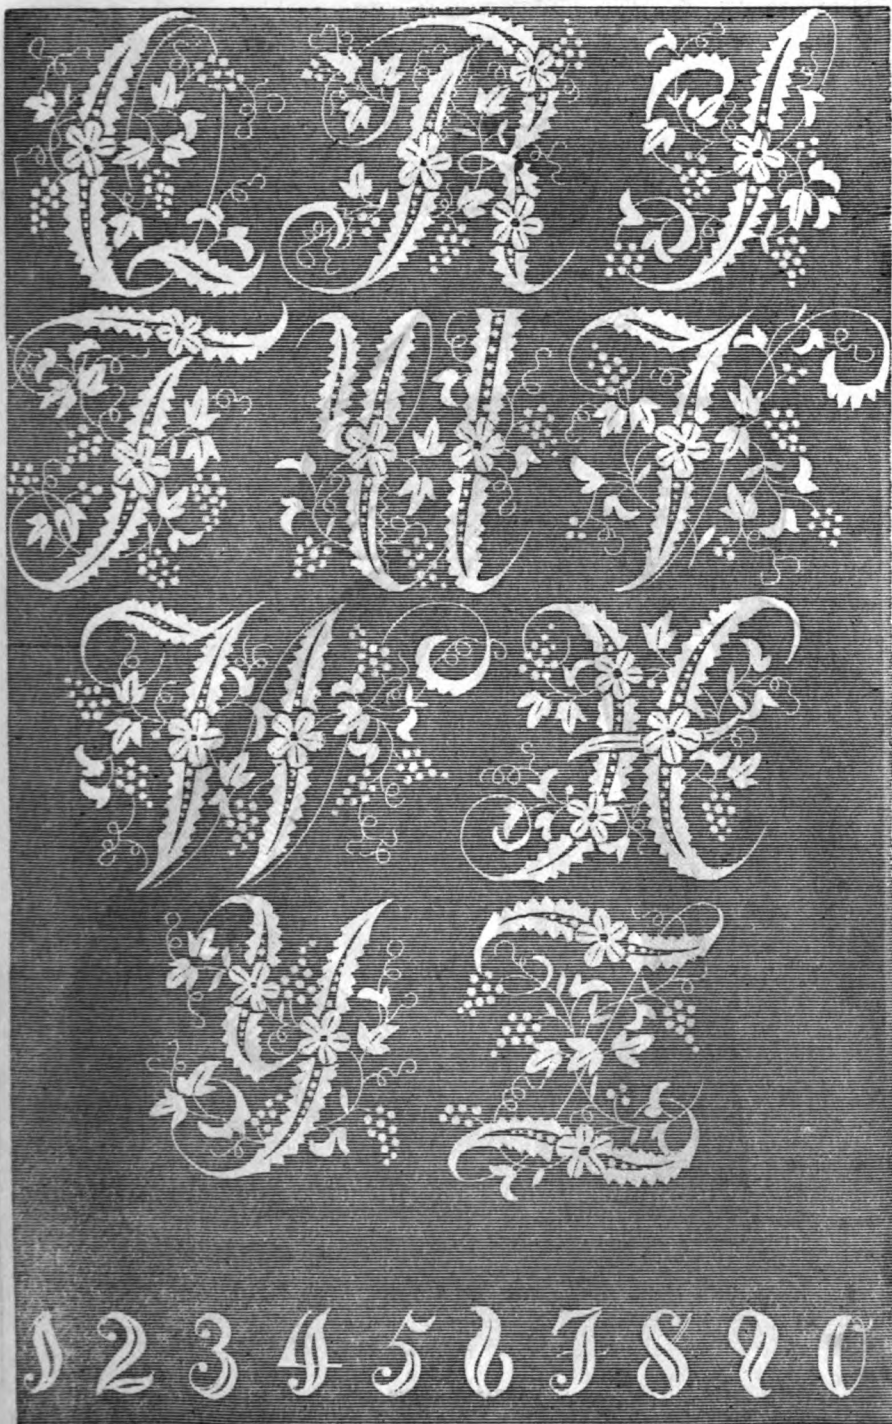 Q R S
T U V
W X
Y Z
1 2 3 4 5 6 7 8 9 0